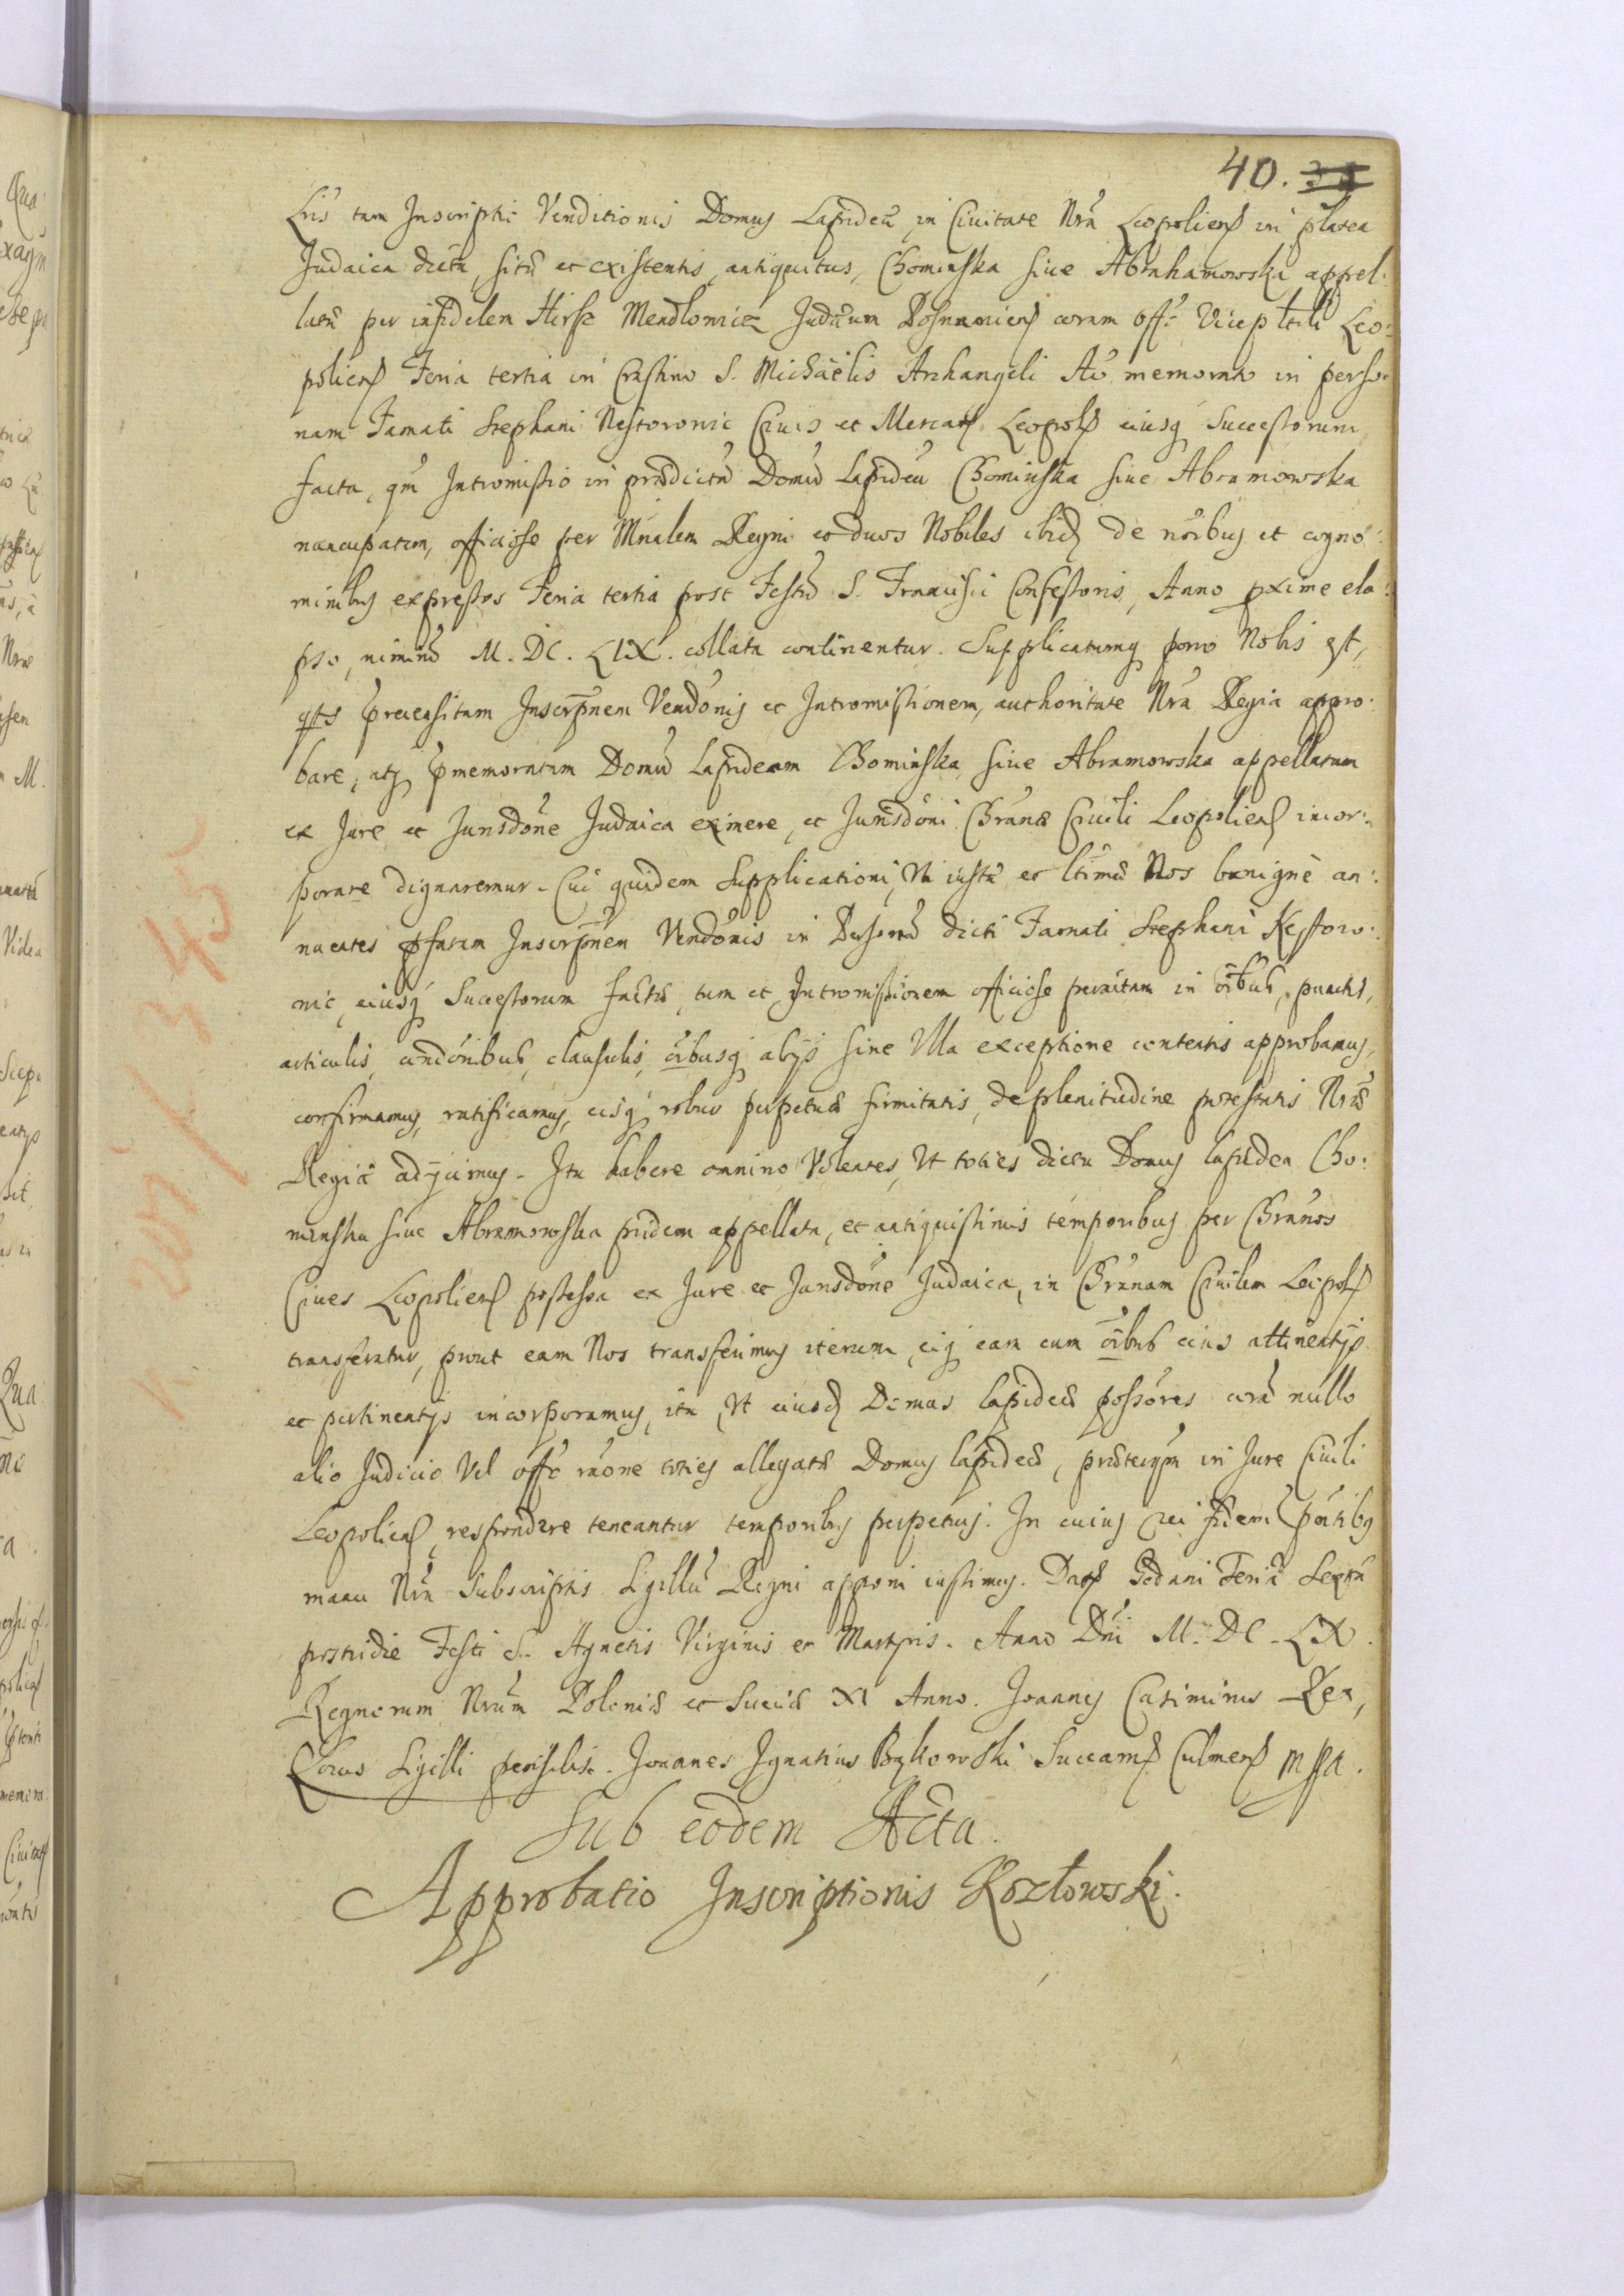 40. 38
Lris tam Inscriptio Venditionis Domus Lapideæ, in Ciuitate Nrã Leopolien̄ in platea
Judaica dicta, sitæ et existentis, antiquitus, Chominska siue Abrahamowska appel:
latæ per infidelem Hirsz Mendlowicz Judæum Posnanien̄ coram off̃o Vicepltili Leo:
polien̄ Feria tertia in Crastino S. Michäelis Archangeli Aõ memorato in perso:
nam Famati Stephani Nestorowic Ciuis et Mercat̄ Leopol̄ eiusq̃ Successorum
facta, qm̃ Intromissio in prædictã Domũ Lapideã Chominska siue Abramowska
nuncupatam, officiose per Mñalem Regni et duos Nobiles ibid̃ de nõibus et cogno:
minibus expressos Feria tertia post Festũ S. Francisci Confessoris, Anno pxime ela:
pso, nimirũ M. DC. LIX. collata continentur. Supplicatumq̃ porro Nobis est,
qts precensitam Inscrp̃nem Vendõnis et Intromissionem, authoritate Nrã Regia appro:
bare, atq̃ p̃memoratam Domũ Lapideam Chominska siue Abramowska appellatam
ex Jure et Jurisdõne Judaica eximere, et Jurisdõni Chrãnæ Ciuili Leopolien̄ incor:
porare dignaremur. Cui quidem Supplicationi, Vti iustæ et ltimæ Nos benignè an:
nuentes pfatam Inscrp̃nem Vendõnis in Personã dicti Famati Stephani Nestoro:
wic, eiusq̃ Successorum factã, tum et Intromissionem officiose peractam in õibus, punctis,
articulis, condõnibus, clausulis, õibusq̃ alijs sine Vlla exceptione contentis approbamus,
confirmamus, ratificamus, eisq̃ robur perpetuæ firmitatis, de plenitudine potestatis Nræ
Regiæ adijcimus. Ita habere omnino Volentes, Vt toties dicta Domus lapidea Cho:
minska siue Abramowska pridem appellata, et antiquissimis temporibus per Chrãnos
Ciues Leopolien̄ possessa ex Jure et Jurisdõne Judaica, in Chrãnam Ciuilem Leopol̄
transferatur, prout eam Nos transferimus iterum, eiq̃ eam cum õibus eius attinentijs
et pertinentijs incorporamus, ita, Vt eiusd̃ Domus lapideæ possõres corã nullo
alio Judicio Vel off̃o rãone toties allegatæ Domus lapideæ, præterqm̃ in Jure Ciuili
Leopolien̄ respondere teneantur temporibus perpetuis. In cuius rei fidem p̃ntibus
manu Nrã subscriptis Sigillũ Regni apponi iussimus. Dat̄ Gedani Feria Sexta
postridie Festi S. Agnetis Virginis et Martyris. Anno Dñi M. DC. LX.
Regnorum Nrũm Poloniæ et Sueciæ XI Anno. Joannes Casimirus Rex,
Locus Sigilli pensilis. Joannes Ignatius Bąkowski Succam̄ Culmen̄ mpa.
Sub eodem Acta.
Approbatio Inscriptionis Kozłowski.